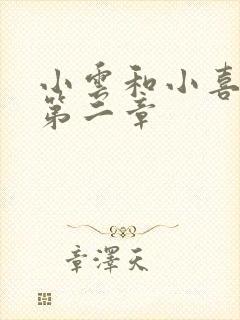 小雲和小喜
第二章
章澤天